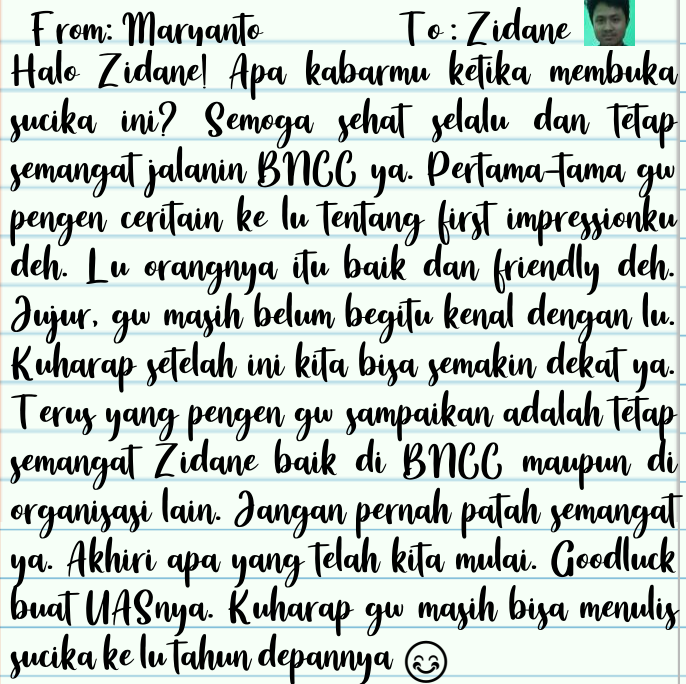 From: Maryanto To: Zidane
Halo Zidane! Apa kabarmu ketika membuka
sucika ini? Semoga sehat selalu dan tetap
semangat jalanin BNCC ya. Pertama-tama gw
pengen ceritain ke lu tentang first impressionku
deh. Lu orangnya itu baik dan friendly deh.
Jujur, gw masih belum begitu kenal dengan lu.
Kuharap setelah ini kita bisa semakin dekat ya.
Terus yang pengen gw sampaikan adalah tetap
semangat Zidane baik di BNCC maupun di
organisasi lain. Jangan pernah patah semangat
ya. Akhiri apa yang telah kita mulai. Goodluck
buat UASnya. Kuharap gw masih bisa menulis
sucika ke lu tahun depannya 😊